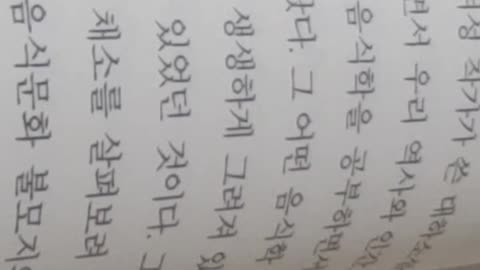 작가가 쓴 대하소
면서 우리 역사와
음식학을 공부하면서
그 어떤 음식학
생생하게 그려져 있
있었던 것이다. 그
채소를 살펴보려
음식문화 불모지